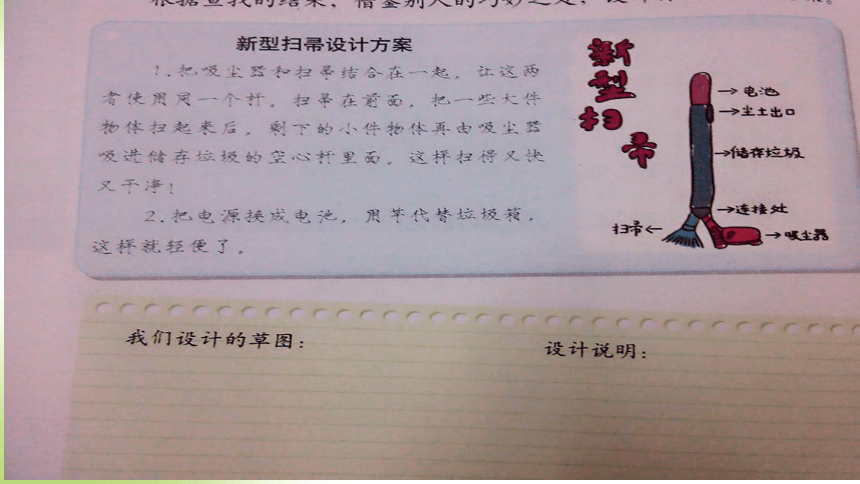 根据查找的结果，借鉴别人的巧妙之处，设计
新型扫帚设计方案
1.把吸尘器和扫帚结合在一起，让这两
者使用同一个杆。扫帚在前面，把一些大件
物体扫起来后，剩下的小件物体再由吸尘器
吸进储存垃圾的空心杆里面。这样扫得又快
又干净！
2.把电源换成电池，用竿代替垃圾箱，
这样就轻便了。
新型扫帚
电池
尘土出口
储存垃圾
连接处
扫帚
吸尘器
我们设计的草图：
设计说明：